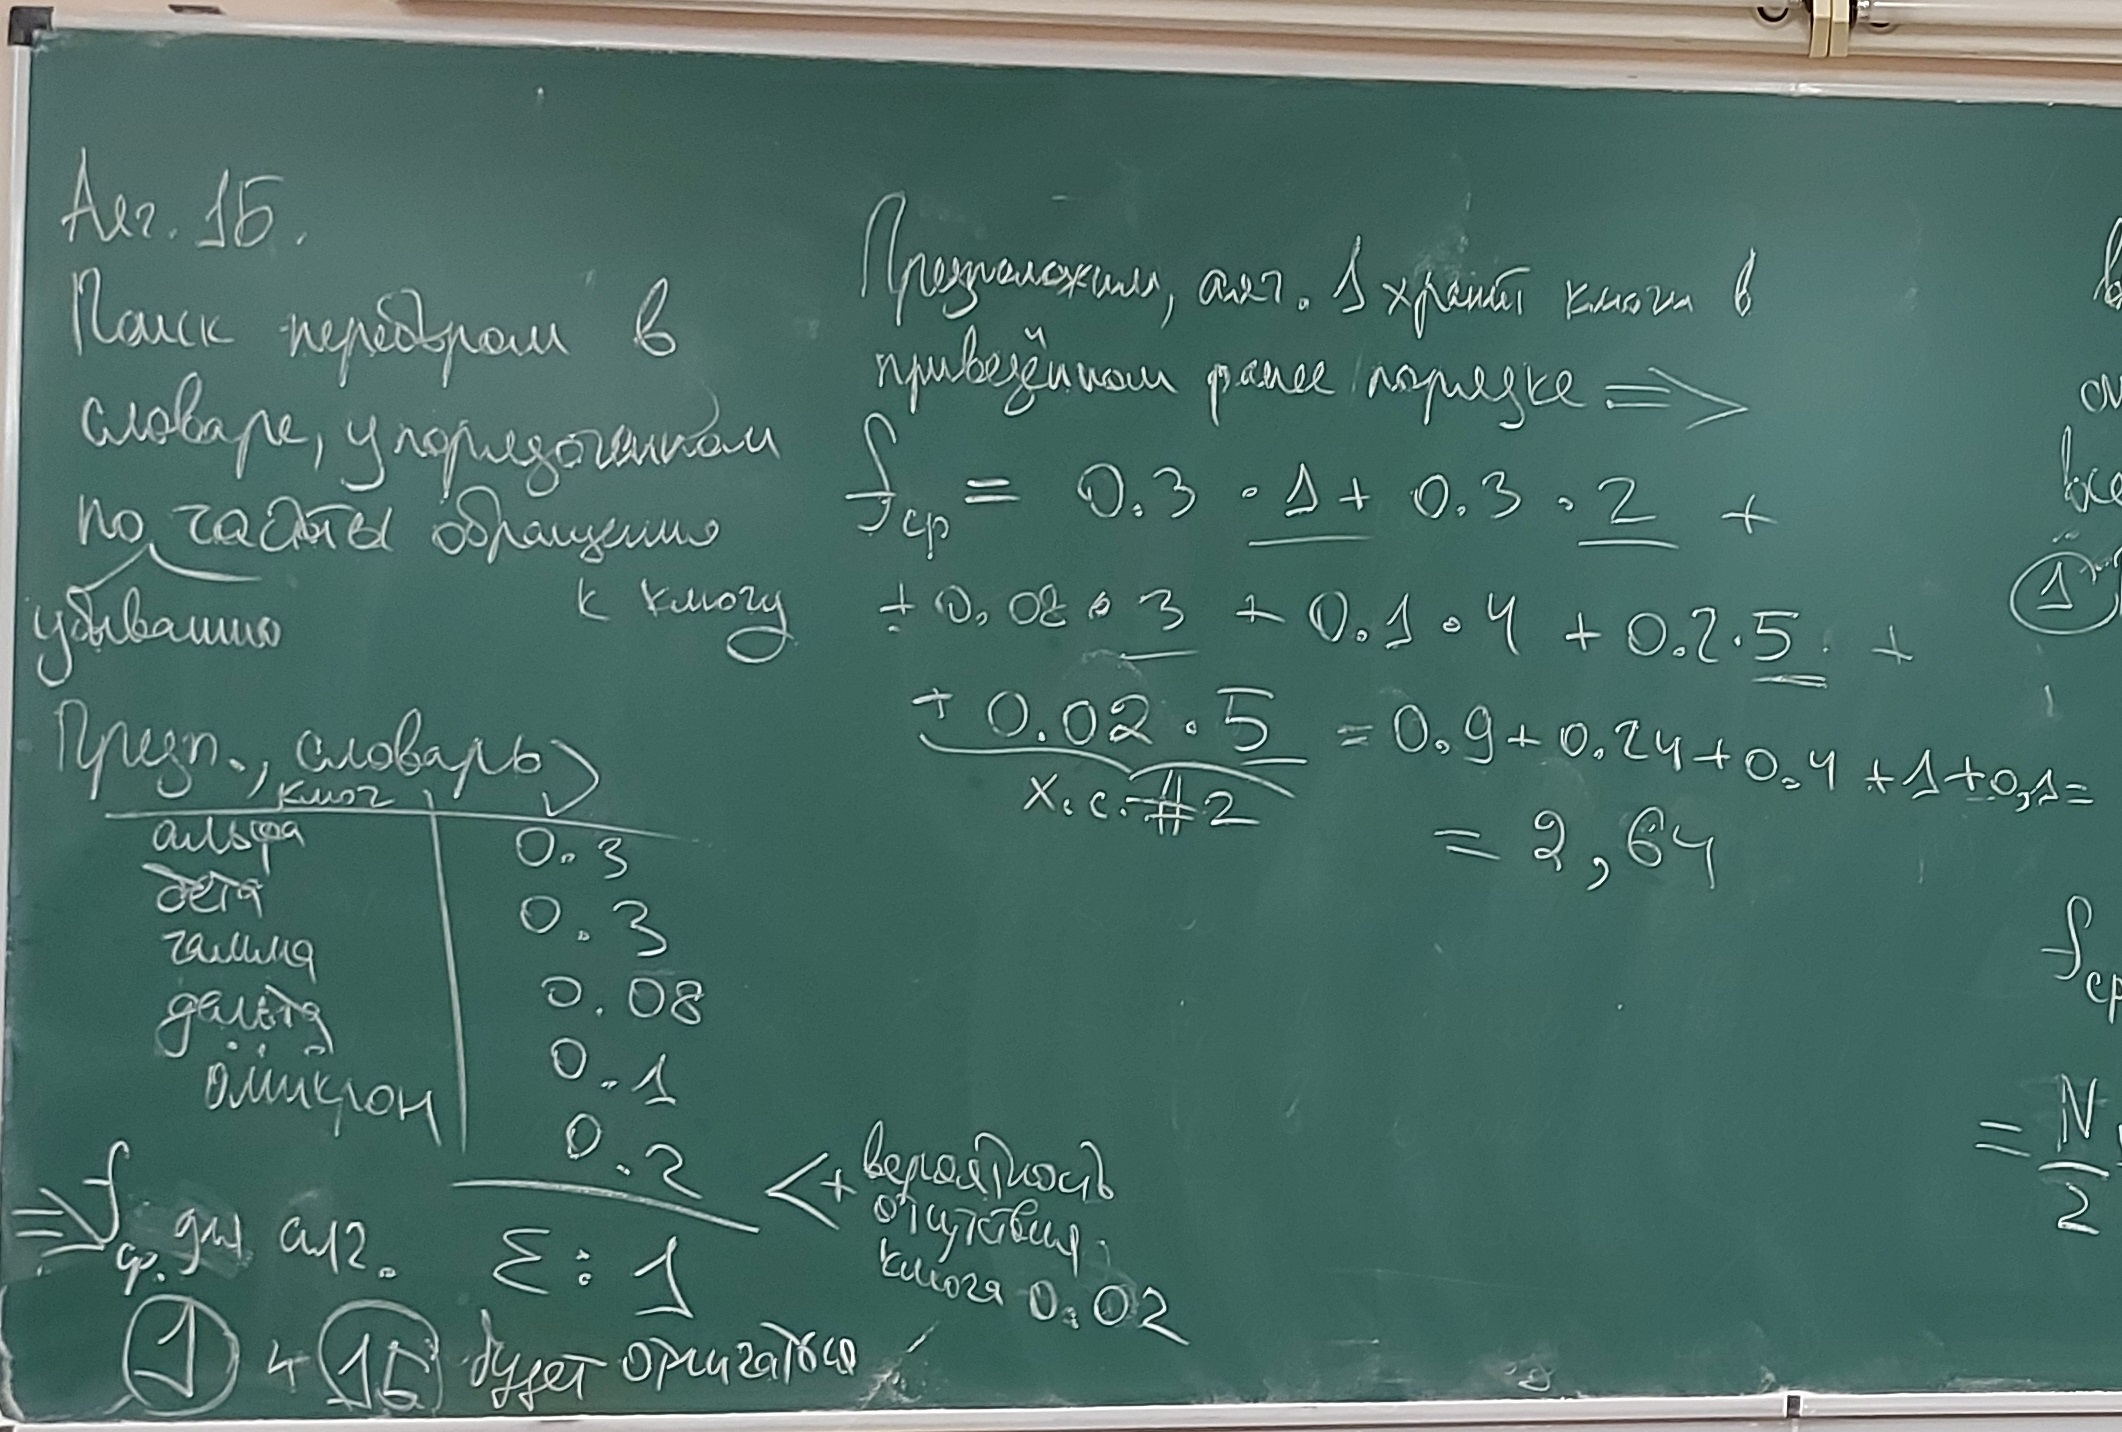 Алг. 1Б.
Поиск перебором в
словаре, упорядоченном
по частоты обращения
убыванию
к ключу
Предп., словарь
ключ
альфа 0.3
бета 0.3
гамма 0.08
дельта 0.1
омикрон 0.2
<+ вероятность
отсутствия
ключа 0.02
Σ: 1
=> f ср. для алг.
1 и 1Б будет отличаться
Предположим, алг. 1 хранит ключи в
приведённом ранее порядке =>
f ср = 0.3 · 1 + 0.3 · 2 +
+ 0.08 · 3 + 0.1 · 4 + 0.2 · 5 +
+ 0.02 · 5 = 0.9 + 0.24 + 0.4 + 1 + 0,1 =
х.с. #2
= 2,64
в
1
f ср
= N
2